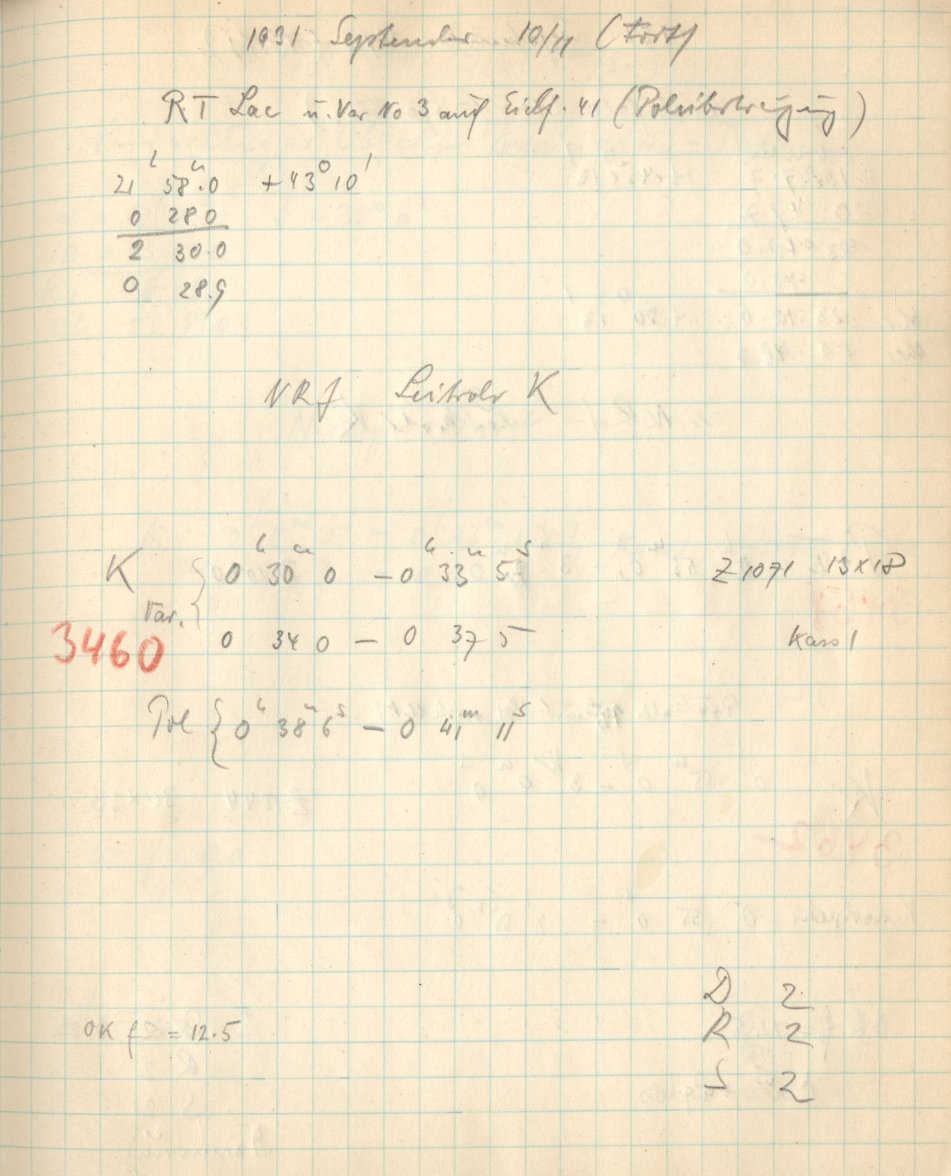 1931 September 10/11 (Forts)
RT Lac u. Var No 3 auf Eichf. 41 (Polübertragung)
21h 58m.0 +43° 10'
0 28 0
2 30.0
0 28.9
NRf Leitrohr K
K { 0h 30m 0 – 0h 33m 5s Z 1071 13x18
Var.
3460 0 34 0 – 0 37 5 Kass 1
Pol { 0h 38m 6s – 0 41m 11s
D 2
OK f = 12.5 R 2
S 2